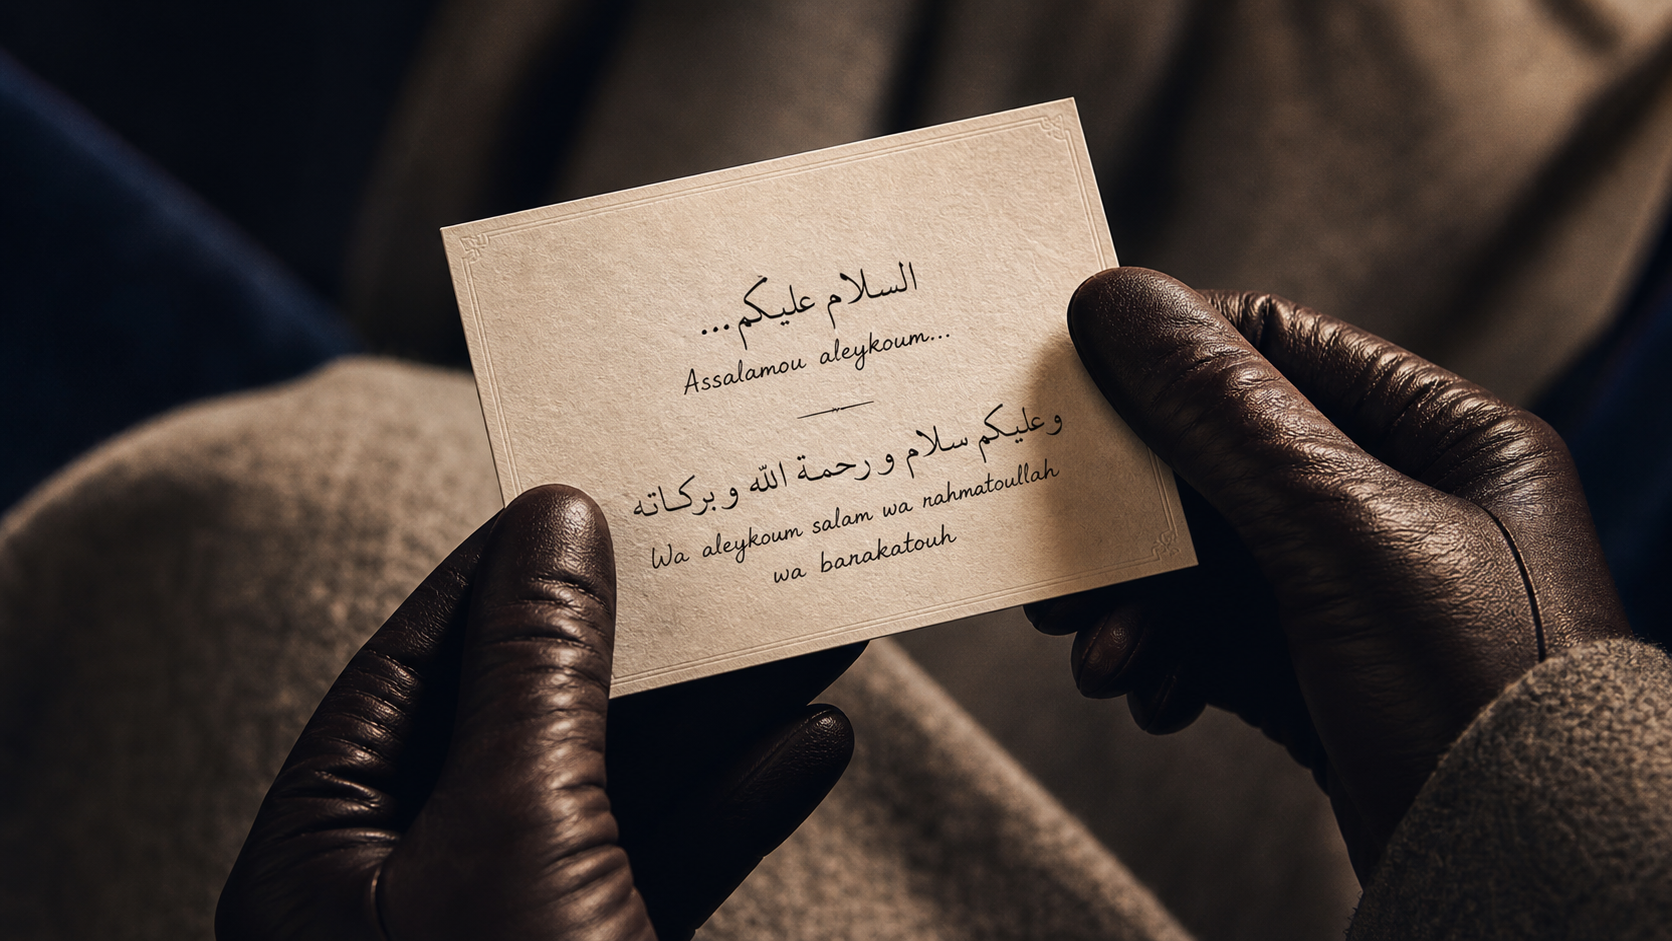 السلام عليكم...
Assalamou aleykoum...
وعليكم سلام و رحمة الله و بركاته
Wa aleykoum salam wa rahmatoullah
wa banakatouh